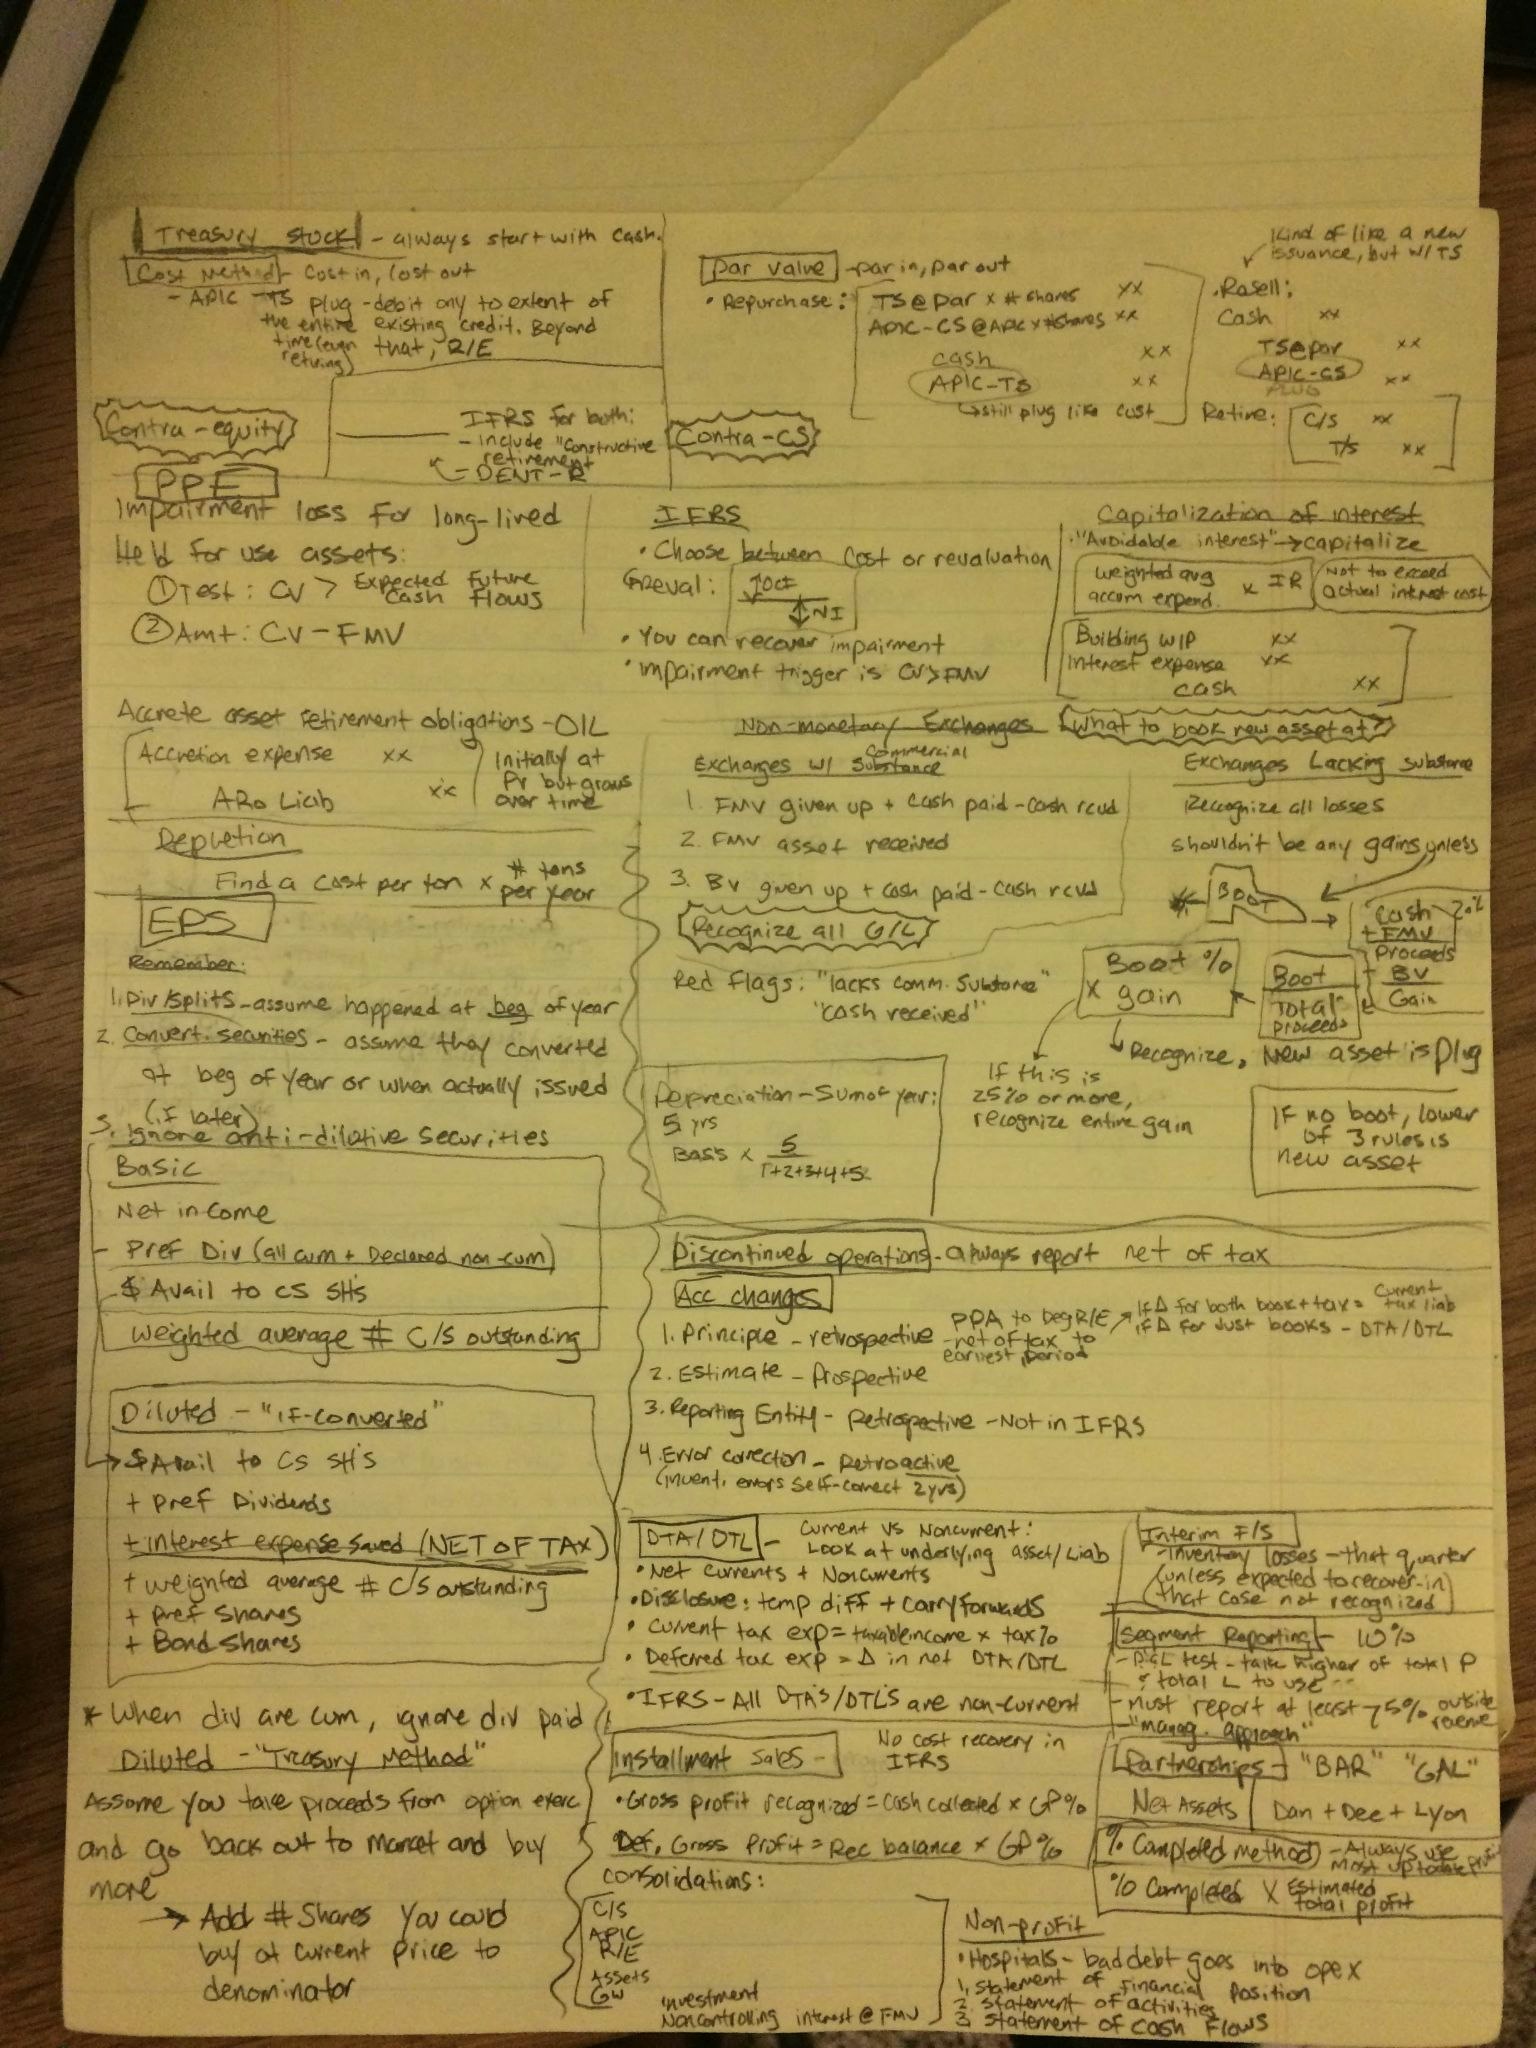 Treasury Stock - always start with cash.
Cost Method - Cost in, cost out
- APIC-TS plug - debit only to extent of
the entire existing credit. Beyond
time (even retiring) that, R/E
Contra-equity
IFRS for both:
- include "constructive
retirement
DENT-R
Par value - par in, par out
• Repurchase:
TS@par x # shares xx
APIC-CS@APIC x #shares xx
cash xx
APIC-TS xx
↳ still plug like cost
Contra-CS
Kind of like a new
issuance, but w/ TS
• Resell:
Cash xx
TS@par xx
APIC-CS xx
PLUG
Retire:
C/S xx
T/S xx
PPE
Impairment loss for long-lived
Held for use assets:
① Test: CV > Expected Future
Cash Flows
② Amt: CV - FMV
Accrete asset retirement obligations - OIL
Accretion expense xx
ARO Liab xx
Initially at
PV but grows
over time
Depletion
Find a cost per ton x # tons
per year
IFRS
• Choose between cost or revaluation
Reval: ↕OCI
↕NI
• You can recover impairment
• Impairment trigger is CV>FMV
Capitalization of interest
• "Avoidable interest" → capitalize
weighted avg
accum expend. x IR
Not to exceed
actual interest cost
Building WIP xx
Interest expense xx
cash xx
Non-monetary Exchanges
What to book new asset at?
Exchanges w/ Commercial Substance
1. FMV given up + cash paid - cash rcvd
2. FMV asset received
3. BV given up + cash paid - cash rcvd
Recognize all G/L
Red Flags: "lacks comm. Substance"
"cash received"
Exchanges Lacking substance
Recognize all losses
shouldn't be any gains unless
BOOT
Cash
+ FMV
Proceeds
- BV
Gain
Boot
Total
proceeds
Boot %
x gain
↳ Recognize, New asset is plug
If this is
25% or more,
recognize entire gain
If no boot, lower
of 3 rules is
new asset
Depreciation - Sum of year:
5 yrs
Basis x 5
1+2+3+4+5
EPS
Remember:
1. Div/splits - assume happened at beg of year
2. Convert. securities - assume they converted
at beg of year or when actually issued
(if later)
3. Ignore anti-dilutive securities
Basic
Net income
- Pref Div (all cum + Declared non-cum)
$ Avail to CS SH's
Weighted average # C/S outstanding
Diluted - "if-converted"
→ $ Avail to CS SH's
+ Pref Dividends
+ interest expense saved (NET OF TAX)
+ weighted average # C/S outstanding
+ Pref Shares
+ Bond Shares
* When div are cum, ignore div paid
Diluted - "Treasury Method"
Assume you take proceeds from option exerc
and go back out to market and buy
more
→ Add # Shares you could
buy at current price to
denominator
Discontinued operations - always report net of tax
Acc changes
1. Principle - retrospective
PPA to beg R/E
- net of tax to
earliest period
If Δ for both book + tax = current
tax liab
if Δ for Just books - DTA/DTL
2. Estimate - Prospective
3. Reporting Entity - Retrospective - Not in IFRS
4. Error correction - Retroactive
(invent. errors self-correct 2yrs)
DTA/DTL - Current vs Noncurrent:
Look at underlying asset/Liab
• Net Currents + Noncurrents
• Disclosure: temp diff + carryforwards
• Current tax exp = taxable income x tax%
• Deferred tax exp = Δ in net DTA/DTL
• IFRS - All DTA's/DTL's are non-current
Interim F/S
- Inventory losses - that quarter
(unless expected to recover - in
that case not recognized)
Segment Reporting - 10%
- P&L test - take higher of total P
& total L to use
- Must report at least 75% outside
revenue
"manag. approach"
Installment Sales - No cost recovery in
IFRS
• Gross profit recognized = cash collected x GP%
Def. Gross Profit = Rec balance x GP%
Partnerships - "BAR" "GAL"
Net Assets | Dan + Dee + Lyon
% Completed method - Always use
most up to date
% Completed x Estimated
total profit
Consolidations:
C/S
APIC
R/E
Assets
GW
investment
Noncontrolling interest @ FMV
Non-profit
• Hospitals - bad debt goes into opex
1. Statement of Financial Position
2. Statement of activities
3. Statement of Cash Flows